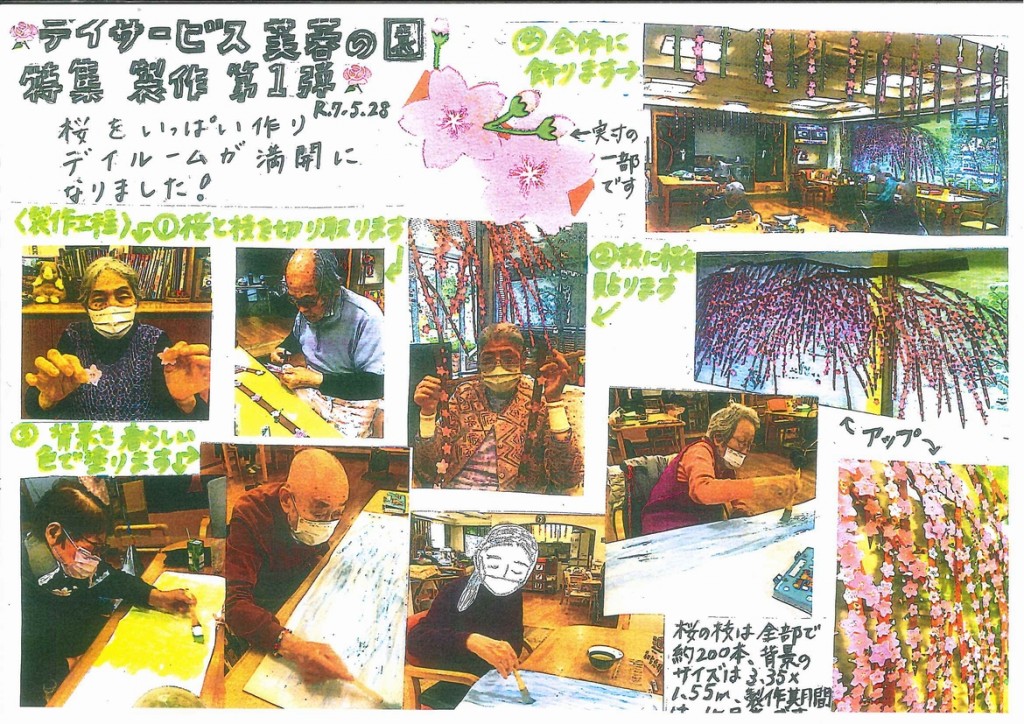 デイサービス 芙蓉の園
特集 製作 第1弾
R.7.5.28
桜をいっぱい作り
デイルームが満開に
なりました!
④全体に
飾ります→
←実寸の
一部
です
〈製作工程〉①桜と枝を切り取ります
②枝に桜を
貼ります
③ 背景を春らしい
色で塗ります
アップ
桜の枝は全部で
約200本、背景の
サイズは3.35×
1.55m、製作期間